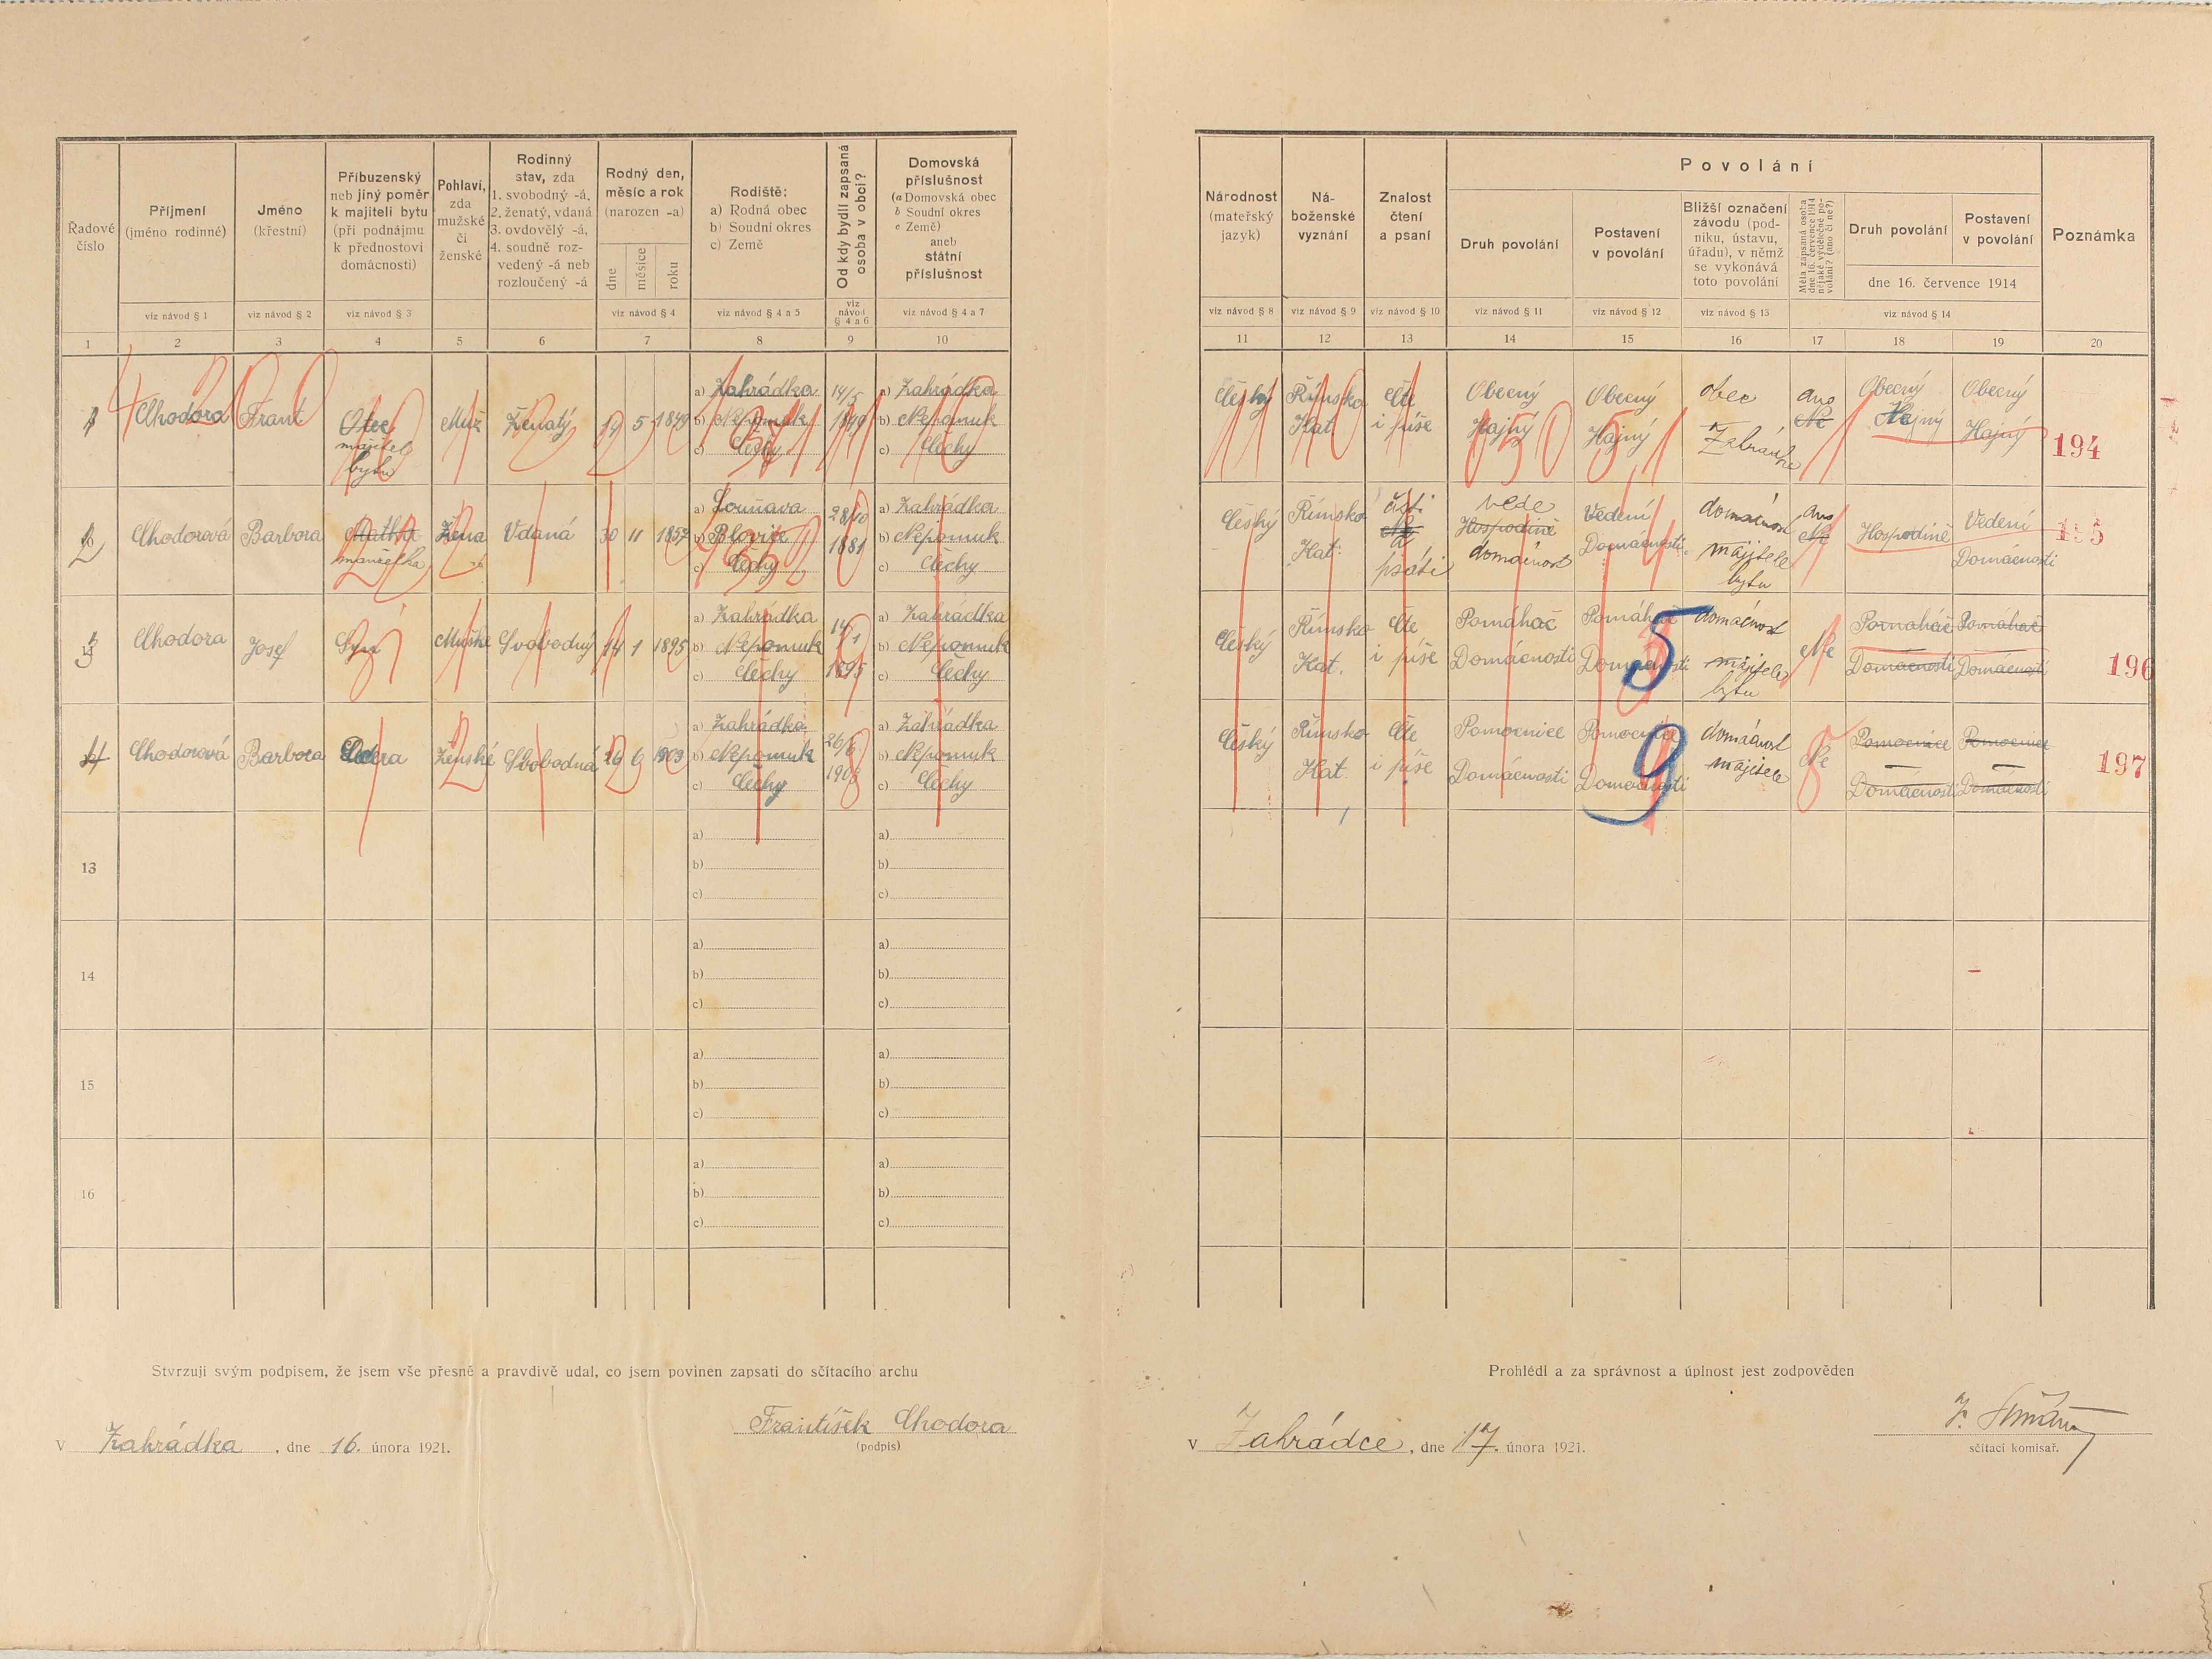 Řadové
číslo
Příjmení
(jméno rodinné)
Jméno
(křestní)
Příbuzenský
neb jiný poměr
k majiteli bytu
(při podnájmu
k přednostovi
domácnosti)
Pohlaví,
zda
mužské
či
ženské
Rodinný
stav, zda
1. svobodný -á,
2. ženatý, vdaná
3. ovdovělý -á,
4. soudně roz-
vedený -á neb
rozloučený -á
Rodný den,
měsíc a rok
(narozen -a)
dne
měsíce
roku
Rodiště:
a) Rodná obec
b) Soudní okres
c) Země
Od kdy bydlí zapsaná
osoba v obci?
Domovská
příslušnost
(a Domovská obec
b Soudní okres
c Země)
aneb
státní
příslušnost
viz návod § 1
viz návod § 2
viz návod § 3
viz návod § 4
viz návod § 4 a 5
viz
návod
§ 4 a 6
viz návod § 4 a 7
1 2 3 4 5 6 7 8 9 10
1 Chodora Frant Otec Muž Ženatý 19 5 1849
majitel
bytu
a) Zahrádka
b) Nepomuk
c) Čechy
14/5
1849
a) Zahrádka
b) Nepomuk
c) Čechy
2 Chodorová Barbora Matka Žena Vdaná 30 11 1857
manželka
a) Louňava
b) Blovice
c) Čechy
28/10
1881
a) Zahrádka
b) Nepomuk
c) Čechy
3 Chodora Josef Syn Mužské Svobodný 14 1 1895
a) Zahrádka
b) Nepomuk
c) Čechy
14/1
1895
a) Zahrádka
b) Nepomuk
c) Čechy
4 Chodorová Barbora Dcera Ženské Svobodná 26 6 1903
a) Zahrádka
b) Nepomuk
c) Čechy
26/6
1903
a) Zahrádka
b) Nepomuk
c) Čechy
13
a) a)
b) b)
c) c)
14
a) a)
b) b)
c) c)
15
a) a)
b) b)
c) c)
16
a) a)
b) b)
c) c)
Stvrzuji svým podpisem, že jsem vše přesně a pravdivě udal, co jsem povinen zapsati do sčítacího archu
František Chodora
(podpis)
V Zahrádka, dne 16. února 1921.
Národnost
(mateřský
jazyk)
Ná-
boženské
vyznání
Znalost
čtení
a psaní
Povolání
Druh povolání
Postavení
v povolání
Bližší označení
závodu (pod-
niku, ústavu,
úřadu), v němž
se vykonává
toto povolání
Měla zapsaná osoba
dne 16. července 1914
nějaké výdělečné po-
volání? (ano či ne?)
Druh povolání
Postavení
v povolání
dne 16. července 1914
Poznámka
viz návod § 8
viz návod § 9
viz návod § 10
viz návod § 11
viz návod § 12
viz návod § 13
viz návod § 14
11 12 13 14 15 16 17 18 19 20
Český Římsko Čte Obecný Obecný obec ano Obecný Obecný
Kat i píše Hajný Hajný Zahrádka Ne Hajný Hajný 194
Český Římsko čísti vede Vedení domácnost ano Hospodině Vedení 195
Kat. a Hospodině Domácnosti majitele Ne Domácnosti
psáti domácnost bytu
Český Římsko Čte Pomáhač Pomáhač domácnost Ne Pomáhač Pomáhač
Kat. i píše Domácnosti Domácnosti majitele Domácnosti Domácnosti 196
bytu
5
Český Římsko Čte Pomocnice Pomocnice domácnost Ne Pomocnice Pomocnice
Kat. i píše Domácnosti Domácnosti majitele Domácnosti Domácnosti 197
9
Prohlédl a za správnost a úplnost jest zodpověden
V Zahrádce, dne 17. února 1921.
sčítací komisař.